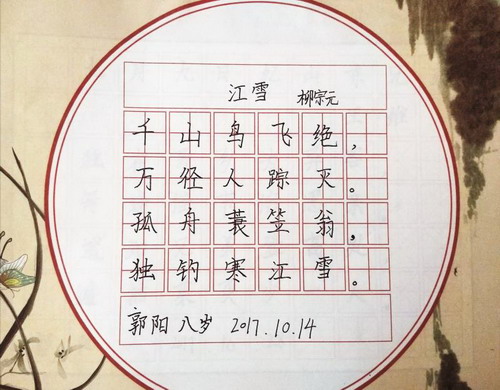 江雪 柳宗元
千山鸟飞绝，
万径人踪灭。
孤舟蓑笠翁，
独钓寒江雪。
郭阳 八岁 2017.10.14